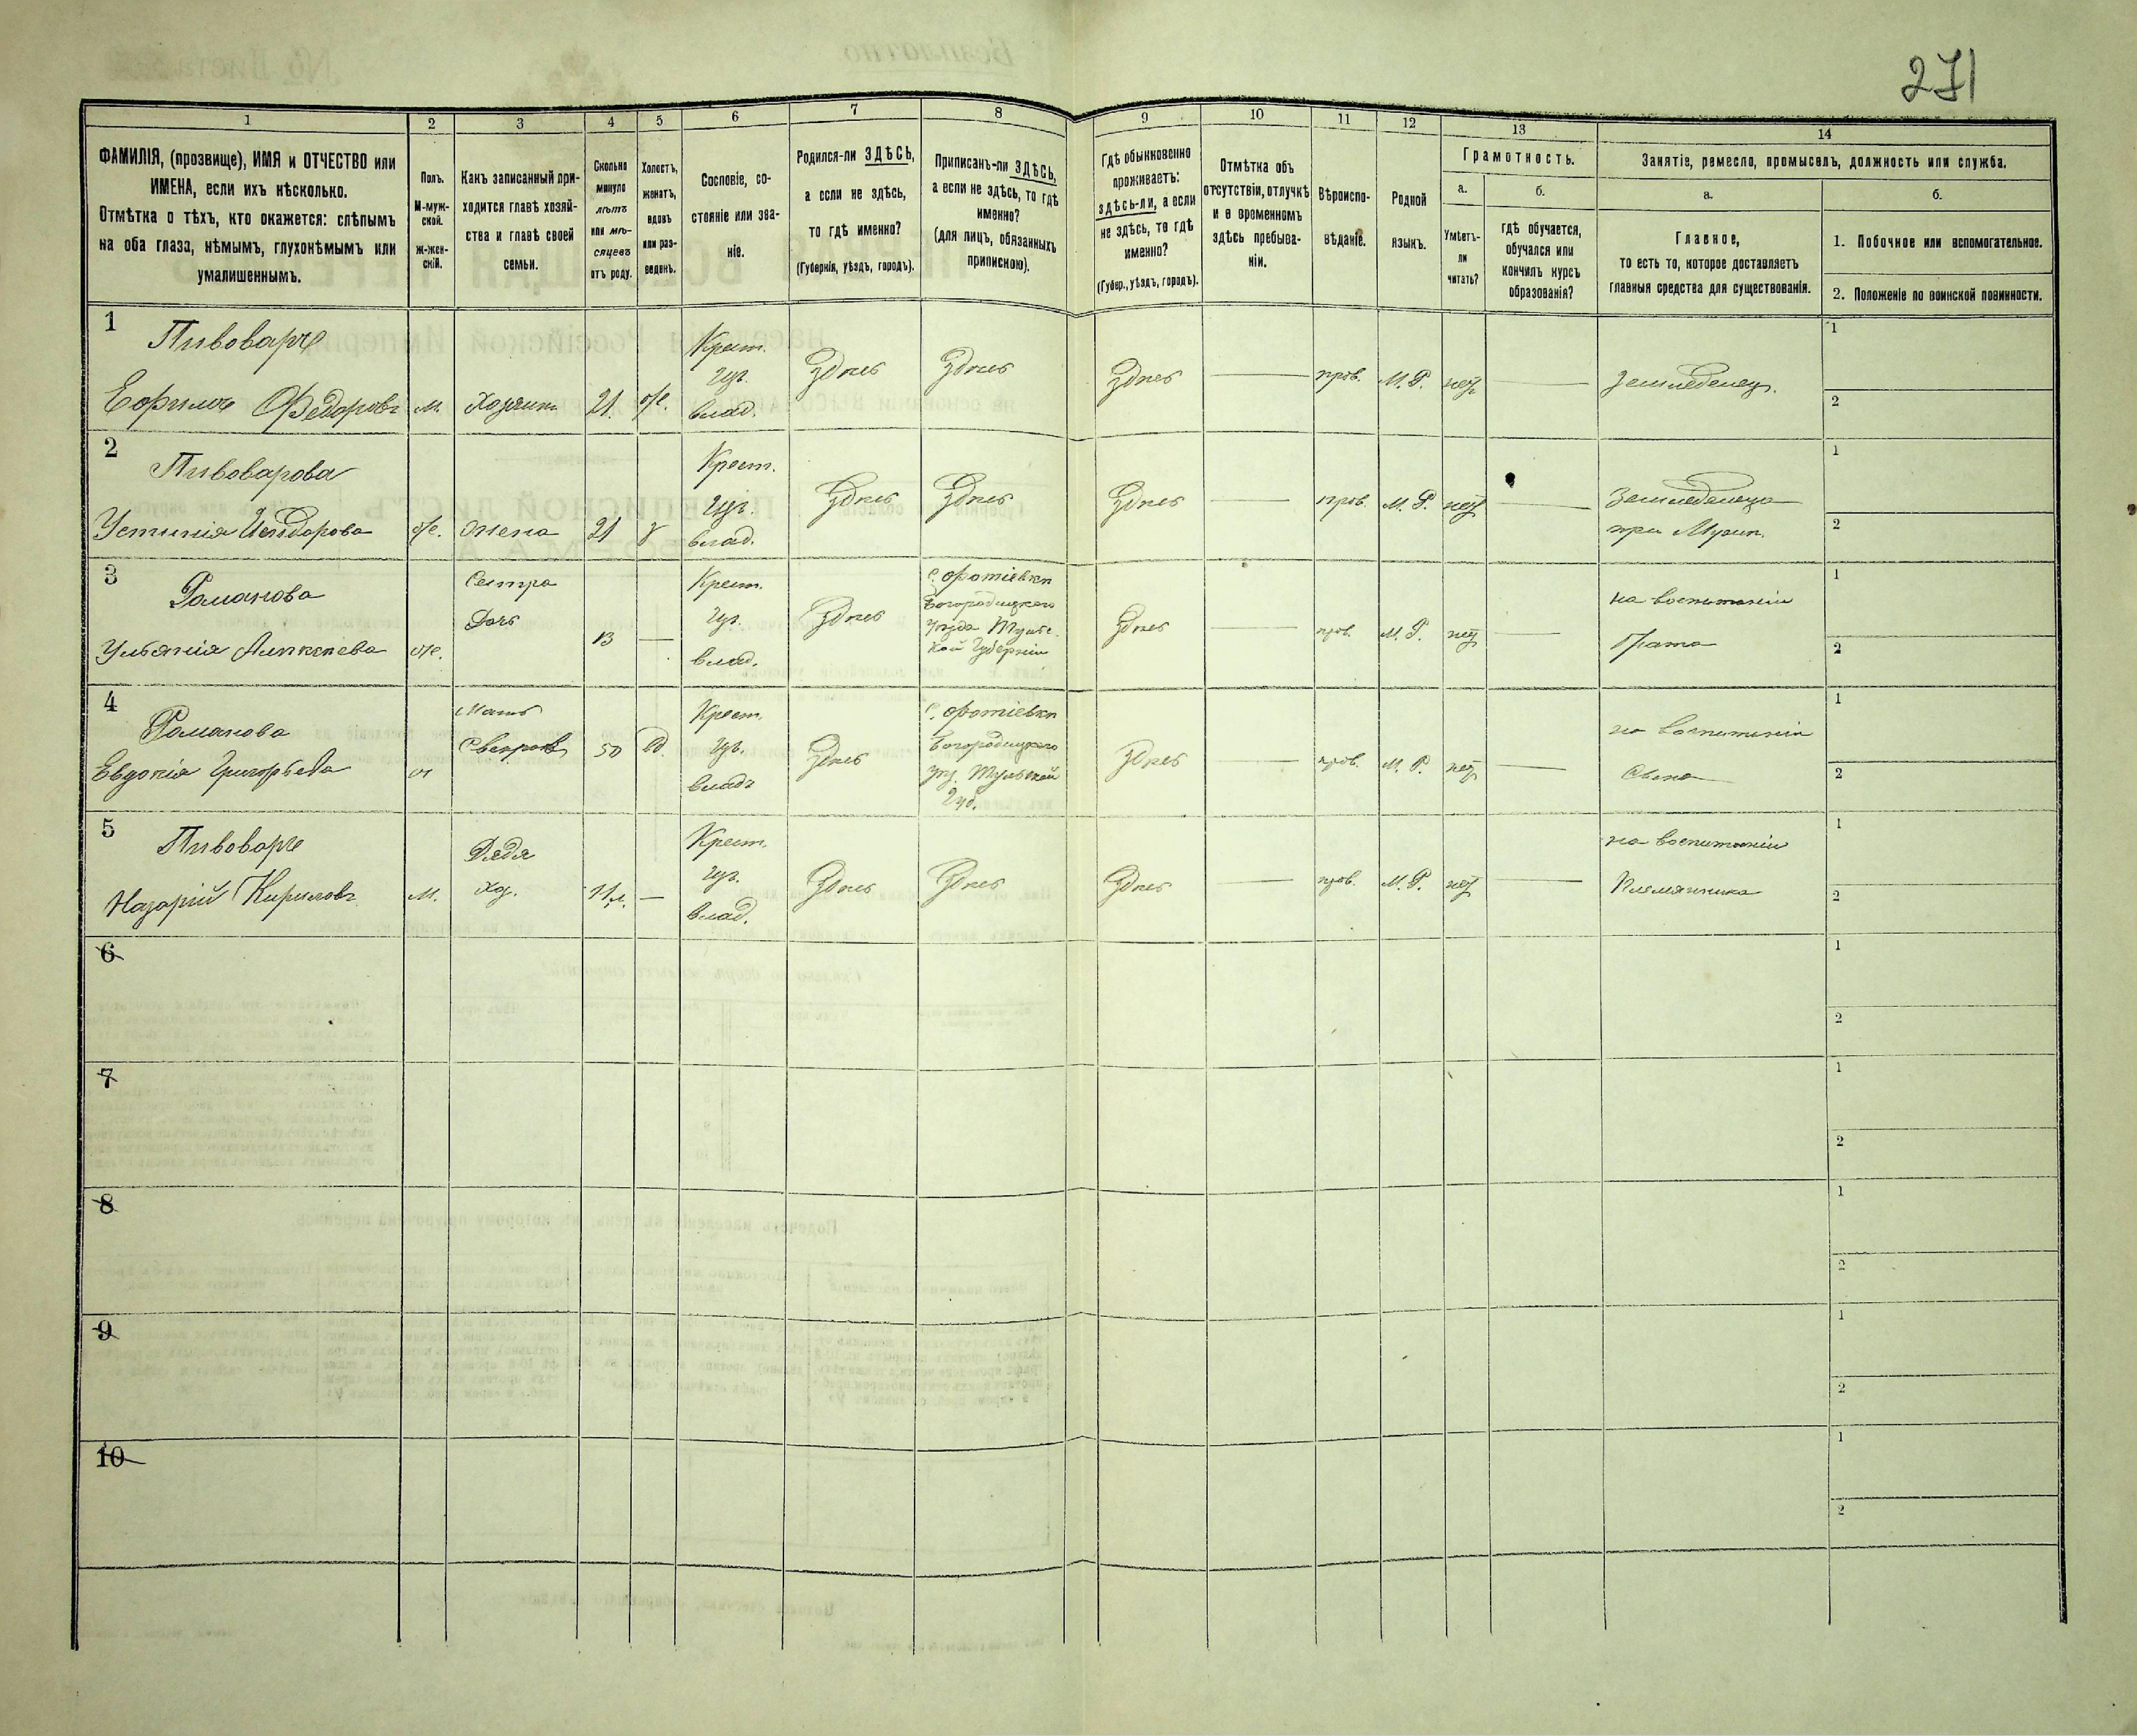 271
1
2
3
4
5
6
7
8
9
10
11
12
13
14
ФАМИЛІЯ, (прозвище), ИМЯ и ОТЧЕСТВО или
ИМЕНА, если ихъ нѣсколько.
Отмѣтка о тѣхъ, кто окажется: слѣпымъ
на оба глаза, нѣмымъ, глухонѣмымъ или
умалишеннымъ.
Полъ.
М-муж-
ской.
Ж-жен-
скій.
Какъ записанный при-
ходится главѣ хозяй-
ства и главѣ своей
семьи.
Сколько
минуло
лѣтъ
или мѣ-
сяцевъ
отъ роду.
Холостъ,
женатъ,
вдовъ
или раз-
веденъ.
Сословіе, со-
стояніе или зва-
ніе.
Родился-ли ЗДѢСЬ,
а если не здѣсь,
то гдѣ именно?
(Губернія, уѣздъ, городъ).
Приписанъ-ли ЗДѢСЬ,
а если не здѣсь, то гдѣ
именно?
(для лицъ, обязанныхъ
припискою).
Гдѣ обыкновенно
проживаетъ:
здѣсь-ли, а если
не здѣсь, то гдѣ
именно?
(Губер., уѣздъ, городъ).
Отмѣтка объ
отсутствіи, отлучкѣ
и о временномъ
здѣсь пребыва-
ніи.
Вѣроиспо-
вѣданіе.
Родной
языкъ.
Грамотность.
а.
Умѣетъ-
ли
читать?
б.
гдѣ обучается,
обучался или
кончилъ курсъ
образованія?
Занятіе, ремесло, промыселъ, должность или служба.
а.
Главное,
то есть то, которое доставляетъ
главныя средства для существованія.
б.
1. Побочное или вспомогательное.
2. Положеніе по воинской повинности.
1
Пивоваръ
Ефримъ Федоровъ
м.
Хозяинъ
21
ж.
Крест.
влад.
Здѣсь
Здѣсь
Здѣсь
прав.
М. Р.
нѣтъ
Земледѣлецъ.
1
2
2
Пивоварова
Устинія Исидорова
ж.
жена
21
з
Крест.
влад.
Здѣсь
Здѣсь
Здѣсь
прав.
М. Р.
нѣтъ
Земледѣлица
при Мужѣ.
1
2
3
Романова
Ульянія Алексѣева
ж.
Сестра
Дочь
13
Крест.
влад.
Здѣсь
Богородицкаго
уѣзда Тульс-
кой Губерніи
Здѣсь
прав.
М. Р.
нѣтъ
на воспитаніи
Брата
1
2
4
Романова
Евдокія Григорьева
ж
Мать
Свекровь
50
вд.
Крест.
владѣ
Здѣсь
Богородицкаго
уѣз. Тульской
Губ.
Здѣсь
прав.
М. Р.
нѣтъ
на воспитаніи
Сына
1
2
5
Пивоваръ
Назарій Кириловъ
м.
Дядя
Хоз.
11 л.
Крест.
влад.
Здѣсь
Здѣсь
Здѣсь
прав.
М. Р.
нѣтъ
на воспитаніи
Племянника
1
2
6
1
2
7
1
2
8
1
2
9
1
2
10
1
2